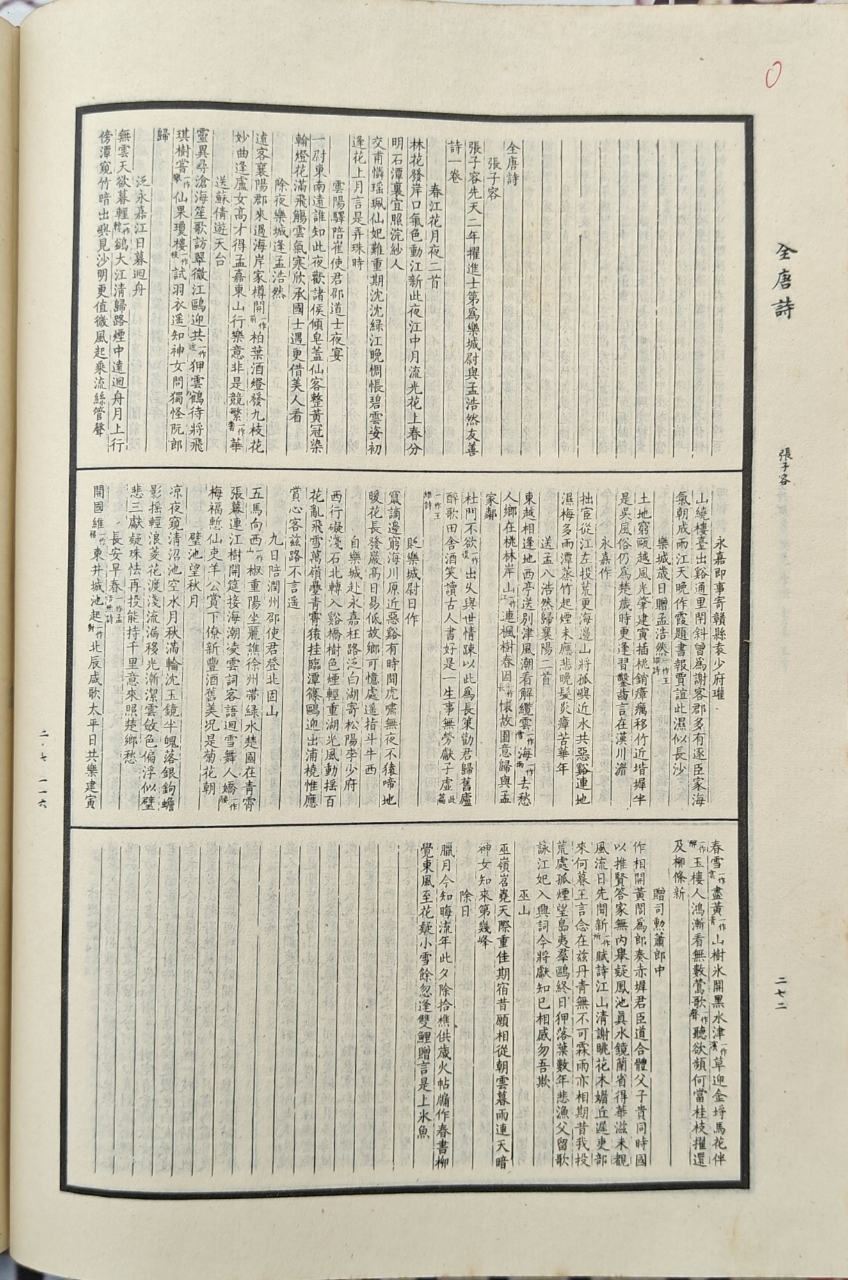 全唐詩
張子容
二七二
二·七 一一六
全唐詩
張子容
張子容先天二年擢進士第為樂城尉與孟浩然友善
詩一卷
春江花月夜二首
林花發岸口氣色動江新此夜江中月流光花上春分
明石潭裏宜照浣紗人
交甫憐瑤珮仙妃難重期沈沈綠江晚惆悵碧雲姿初
逢花上月言是弄珠時
雲陽驛陪崔使君邵道士夜宴
一尉東南遠誰知此夜歡諸侯傾皁蓋仙客整黃冠染
翰燈花滿飛觴雲氣寒欣承國士遇更借美人看
除夜樂城逢孟浩然
遠客襄陽郡來過海岸家樽開一作前柏葉酒燈發九枝花
妙曲逢盧女高才得孟嘉東山行樂意非是競繁一作奢華
送蘇倩遊天台
靈異尋滄海笙歌訪翠微江鷗迎共一作近狎雲鶴待將飛
琪樹嘗一作攀仙果瓊樓一作枝試羽衣遥知神女問獨怪阮郎
歸
泛永嘉江日暮迴舟
無雲天欲暮輕一作鷁大江清歸路煙中遠迴舟月上行
傍潭窺竹暗出嶼見沙明更值微風起乘流絲管聲
永嘉即事寄贛縣袁少府瓘
山繞樓臺出谿通里閈斜曾為謝客郡多有逐臣家海
氣朝成雨江天晚作霞題書報賈誼此濕似長沙
樂城歲日贈孟浩然一作王維詩
土地窮甌越風光肇建寅插桃銷瘴癘移竹近堦墀半
是吳風俗仍為楚歲時更逢習鑿齒言在漢川湄
永嘉作
拙宦從江左投荒更海邊山將孤嶼近水共惡谿連地
濕梅多雨潭蒸竹起煙未應悲晚髮炎瘴苦華年
送孟八浩然歸襄陽二首
東越相逢地西亭送別津風潮看解纜雲一作雪海一作雨去愁
人鄉在桃林岸山一作連楓樹春因一作長懷故園意歸與孟
家鄰
杜門不欲一作復出久與世情踈以此為長策勸君歸舊廬
醉歌田舍酒笑讀古人書好是一生事無勞獻子虛此篇
一作王維詩
貶樂城尉日作
竄謫邊窮海川原近惡谿有時聞虎嘯無夜不猿啼地
暖花長發巖高日易低故鄉可憶處遥指斗牛西
自樂城赴永嘉枉路泛白湖寄松陽李少府
西行礙淺石北轉入谿橋樹色煙輕重湖光風動搖百
花亂飛雪萬嶺疊青霄猿挂臨潭篠鷗迎出浦橈惟應
賞心客茲路不言遥
九日陪潤州邵使君登北固山
五馬向西一作椒重陽坐麗譙徐州帶綠水楚國在青霄
張幕連江樹開筵接海潮凌雲詞客語迴雪舞人嬌一作腰
梅福慙仙吏羊公賞下僚新豐酒舊美況是菊花朝
璧池望秋月
凉夜窺清沼池空水月秋滿輪沈玉鏡半魄落銀鉤蟾
影搖輕浪菱花渡淺流漏移光漸潔雲斂色偏浮似璧
悲三獻疑珠怯再投能持千里意來照楚鄉愁
長安早春一作孟浩然詩
開國維一作東井城池起一作北辰咸歌太平日共樂建寅
春雪一作雲盡黃一作青山樹氷開黑水津一作濱草迎金埒馬花伴
一作醉玉樓人鴻漸看無數鶯歌一作聲聽欲頻何當桂枝擢還
及柳條新
贈司勳蕭郎中
作相開黃閤為郎奏赤墀君臣道合體父子貴同時國
以推賢答家無內舉疑鳳池真水鏡蘭省得華滋未覩
風流日先聞新一作賦詩江山清謝朓花木媚丘遲吏部
來何暮王言念在茲丹青無不可霖雨亦相期昔我投
荒處孤煙望島夷羣鷗終日狎落葉數年悲漁父留歌
詠江妃入興詞今將獻知己相感勿吾欺
巫山
巫嶺岧嶤天際重佳期宿昔願相從朝雲暮雨連天暗
神女知來第幾峰
除日
臘月今知晦流年此夕除拾樵供歲火帖牖作春書柳
覺東風至花疑小雪餘忽逢雙鯉贈言是上氷魚